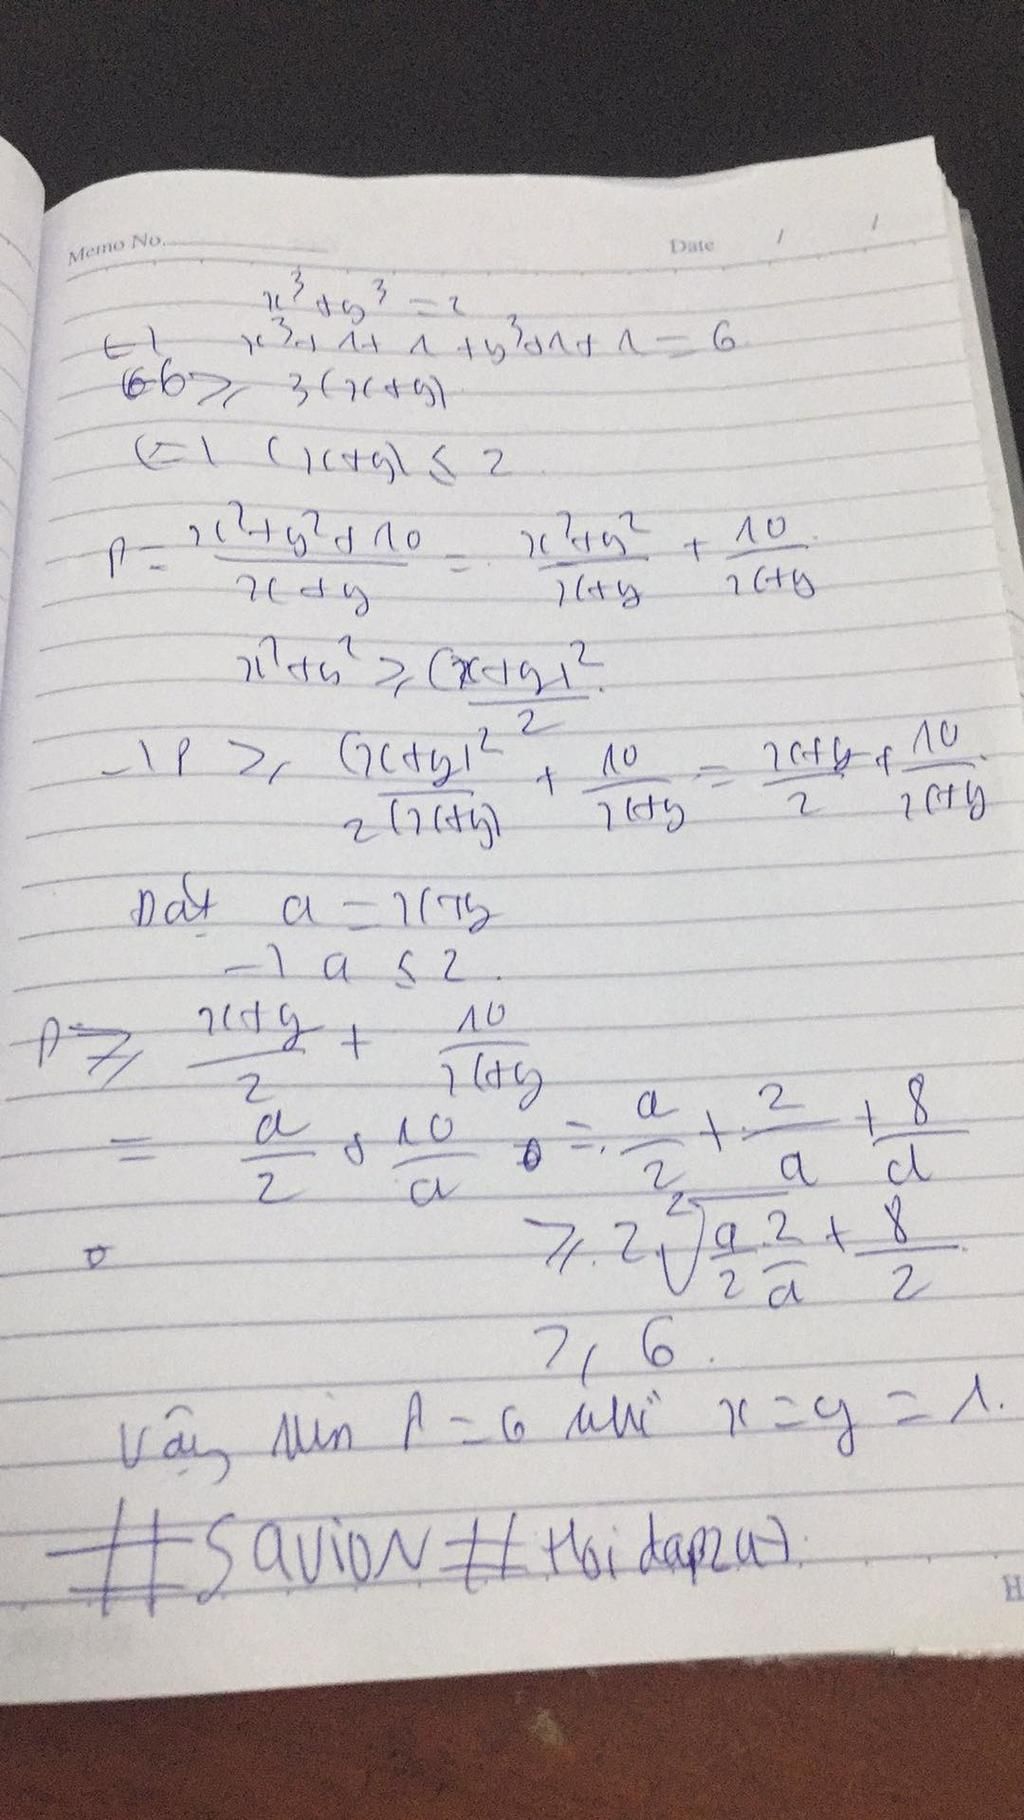 Memo No. Date / /
x³ + y³ = 2
<=> x³ + 1 + 1 + y³ + 1 + 1 = 6
<=> 6 ≥ 3(x+y)
<=> (x+y) ≤ 2
P = (x² + y² + 10)/(x + y) = (x² + y²)/(x+y) + 10/(x+y)
x² + y² ≥ (x+y)²/2
-> P ≥ (x+y)²/(2(x+y)) + 10/(x+y) = (x+y)/2 + 10/(x+y)
Đặt a = x+y
-> a ≤ 2.
P ≥ (x+y)/2 + 10/(x+y)
= a/2 + 10/a = a/2 + 2/a + 8/a
≥ 2.²√(a/2 . 2/a) + 8/2
≥ 6.
Vậy Min P = 6 khi x = y = 1.
#Savion #Hoidap247.
H